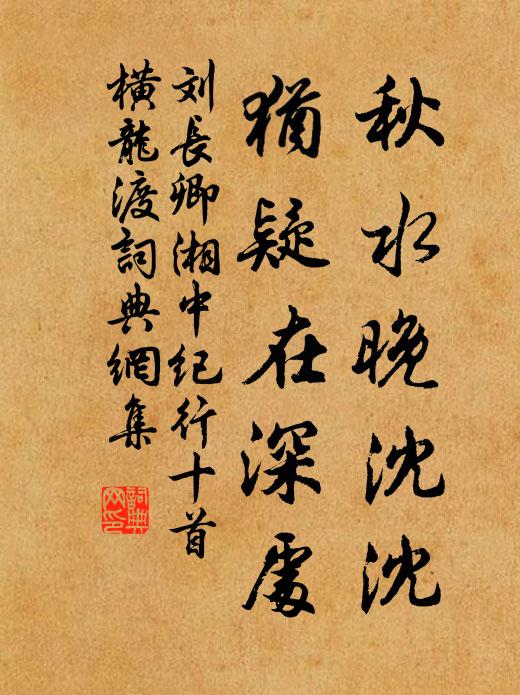 秋水晚沈沈
猶疑在深處
刘長卿湘中纪行十首
橫龍渡詞典網集
詞典
网印